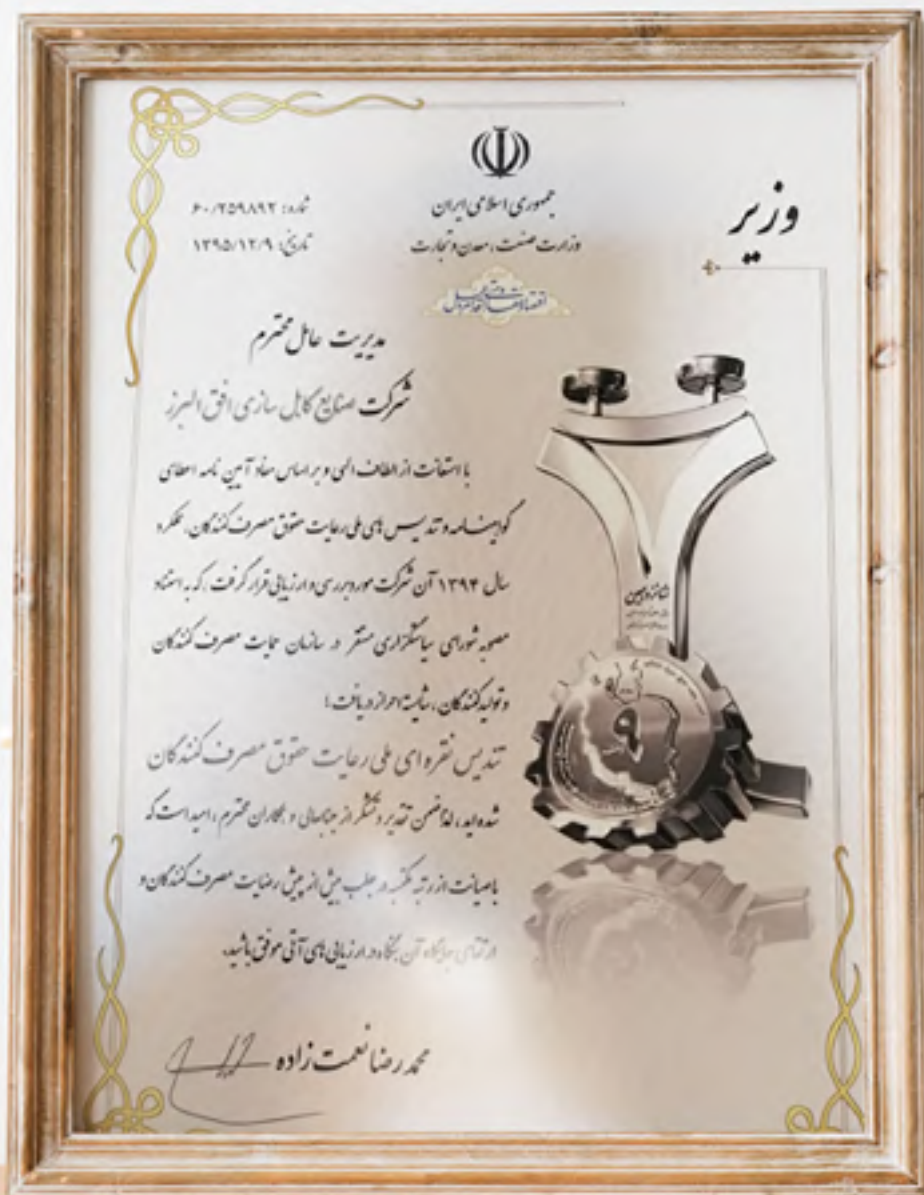 جمهوری اسلامی ایران
وزارت صنعت، معدن و تجارت
وزیر
شماره: ۶۰/۲۵۹۸۹۲
تاریخ: ۱۳۹۵/۱۲/۹
مدیریت عامل محترم
شرکت صنایع کابل سازی افق البرز
با استعانت از الطاف الهی و بر اساس مفاد آیین نامه اعطای
گواهینامه و تندیس های ملی رعایت حقوق مصرف کنندگان، عملکرد
سال ۱۳۹۴ آن شرکت مورد بررسی و ارزیابی قرار گرفت، که به استناد
مصوبه شورای سیاستگزاری مستقر در سازمان حمایت مصرف کنندگان
و تولیدکنندگان، شایسته احراز دریافت؛
تندیس نقره ای ملی رعایت حقوق مصرف کنندگان
شده اید، لذا ضمن تقدیر و تشکر از جنابعالی و همکاران محترم، امید است که
با صیانت از رتبه مکتسبه و جلب بیش از پیش رضایت مصرف کنندگان و
ارتقای جایگاه آن بنگاه در ارزیابی های آتی موفق باشید.
محمدرضا نعمت زاده
شانزدهمین